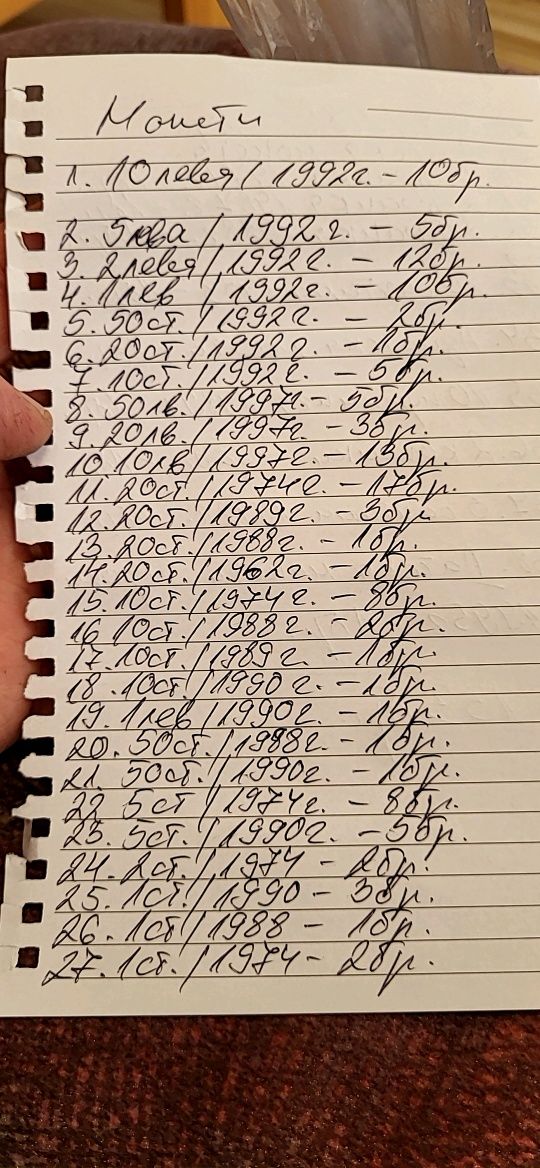 Монети
1. 10 лева / 1992г. - 10бр.
2. 5 лева / 1992 г. - 5бр.
3. 2 лева / 1992г. - 12бр.
4. 1 лев / 1992г. - 10бр.
5. 50ст. / 1992г. - 2бр.
6. 20ст. / 1992г. - 1бр.
7. 10ст. / 1992г. - 5бр.
8. 50лв. / 1997г. - 5бр.
9. 20лв. / 1997г. - 3бр.
10 10лв / 1997г. - 13бр.
11. 20ст. / 1974г. - 17бр.
12. 20ст. / 1989г. - 3бр.
13. 20ст. / 1988г. - 1бр.
14. 20ст. / 1962г. - 1бр.
15. 10ст. / 1974г. - 8бр.
16 10ст. / 1988г. - 2бр.
17. 10ст. / 1989г. - 1бр.
18. 10ст. / 1990г. - 1бр.
19. 1лев / 1990г. - 1бр.
20. 50ст. / 1988г. - 1бр.
21. 50ст. / 1990г. - 1бр.
22 5ст / 1974г. - 8бр.
23. 5ст. / 1990г. - 5бр.
24. 2ст. / 1974 - 2бр.
25. 1ст. / 1990 - 3бр.
26. 1ст / 1988 - 1бр.
27. 1ст. / 1974 - 2бр.